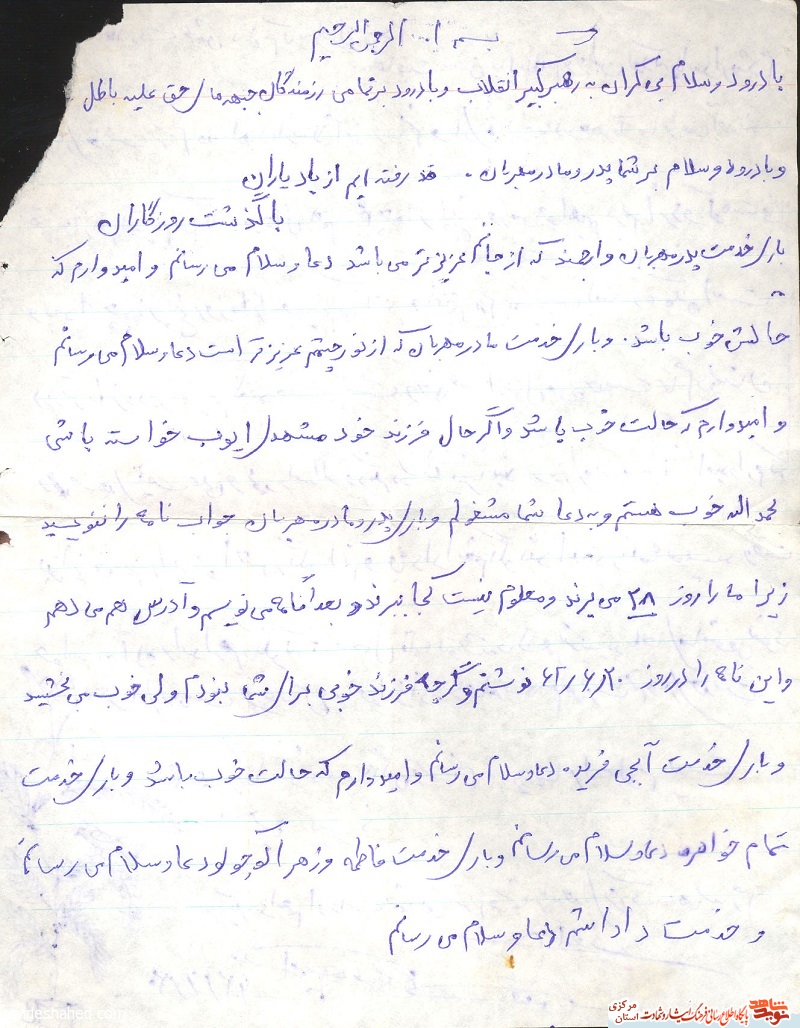 بسم ا... الرحمن الرحیم
با درود و سلام بی کران به رهبر کبیر انقلاب و با درود بر تمامی رزمندگان جبهه های حق علیه باطل
و با درود و سلام بر شما پدر و مادر مهربان .
رفته ایم از یاد یاران
با گذشت روزگاران
باری خدمت پدر مهربان و ارجمند که از جانم عزیزتر می باشد دعا و سلام می رسانم و امیدوارم که
حالش خوب باشد . و باری خدمت مادر مهربان که از نور چشمم عزیزتر است دعا و سلام می رسانم
و امیدوارم که حالت خوب باشد و اگر حال فرزند خود مشهدی ایوب خواسته باشی
لحمد الله خوب هستم و به دعا شما مشغولم و باری پدر و مادر مهربان جواب نامه را ننویسید
زیرا ما را روز ۲۸ می برند و معلوم نیست کجا ببرند و بعداً نامه می نویسم و آدرس هم می دهم
و این نامه را در روز ۶۲/۶/۲۰ نوشتم و گرچه فرزند خوبی برای شما نبودم ولی خوب می بخشید
و باری خدمت آبجی فریده دعا و سلام می رسانم و امیدوارم که حالت خوب باشد و باری خدمت
تمام خواهره دعا و سلام می رسانم و باری خدمت فاطمه و زهرا کوچولو دعا و سلام می رسانم
و خدمت داداشم دعا و سلام می رسانم
نوید شاهد
پایگاه اطلاع رسانی فرهنگ ایثار و شهادت
استان مرکزی
navideshahed.com